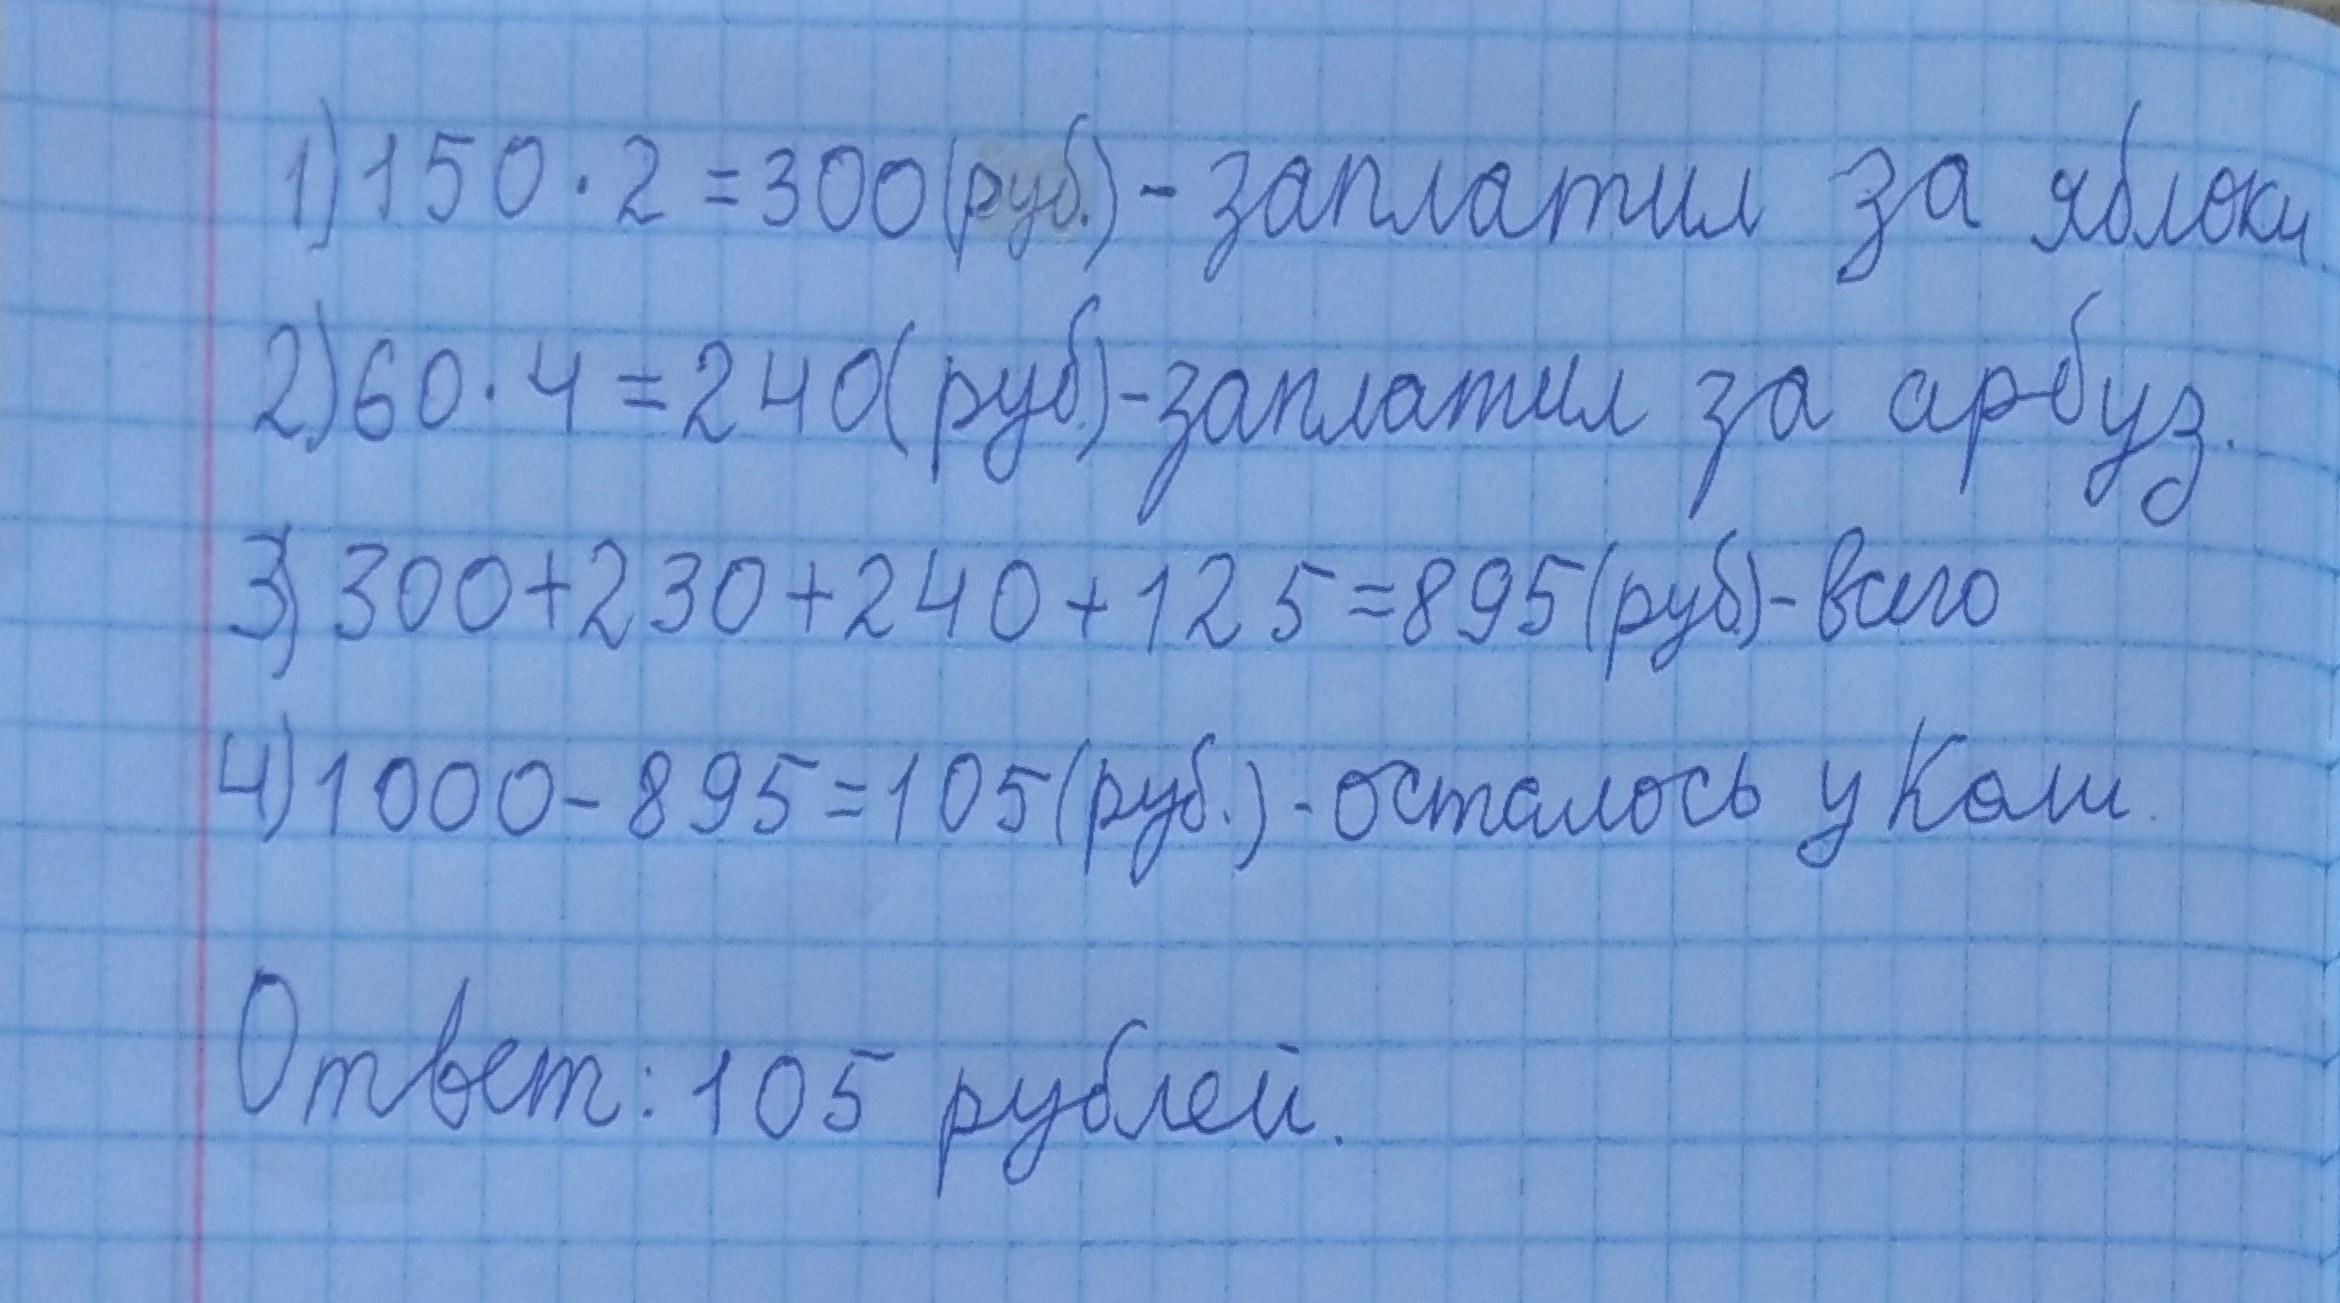 1) 150 · 2 = 300 (руб.) - заплатил за яблоки.
2) 60 · 4 = 240 (руб.) - заплатил за арбуз.
3) 300 + 230 + 240 + 125 = 895 (руб.) - всего
4) 1000 - 895 = 105 (руб.) - осталось у Коли.
Ответ: 105 рублей.